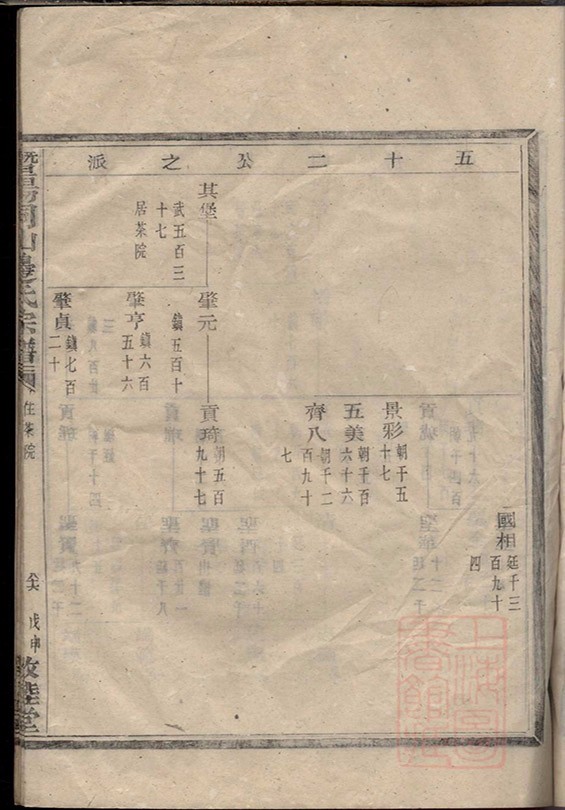 五十二公之派
國相
廷千三
百九十
四
景彩
朝千五
十七
五美
朝千百
六十六
齊八
朝千二
百九十
七
其堡
武五百三
十七
居茶院
肇元
鎮五百十
貢琦
朝五百
九十七
肇亨
鎮六百
五十六
肇貞
鎮七百
二十
氏宗譜
住茶院
戊申